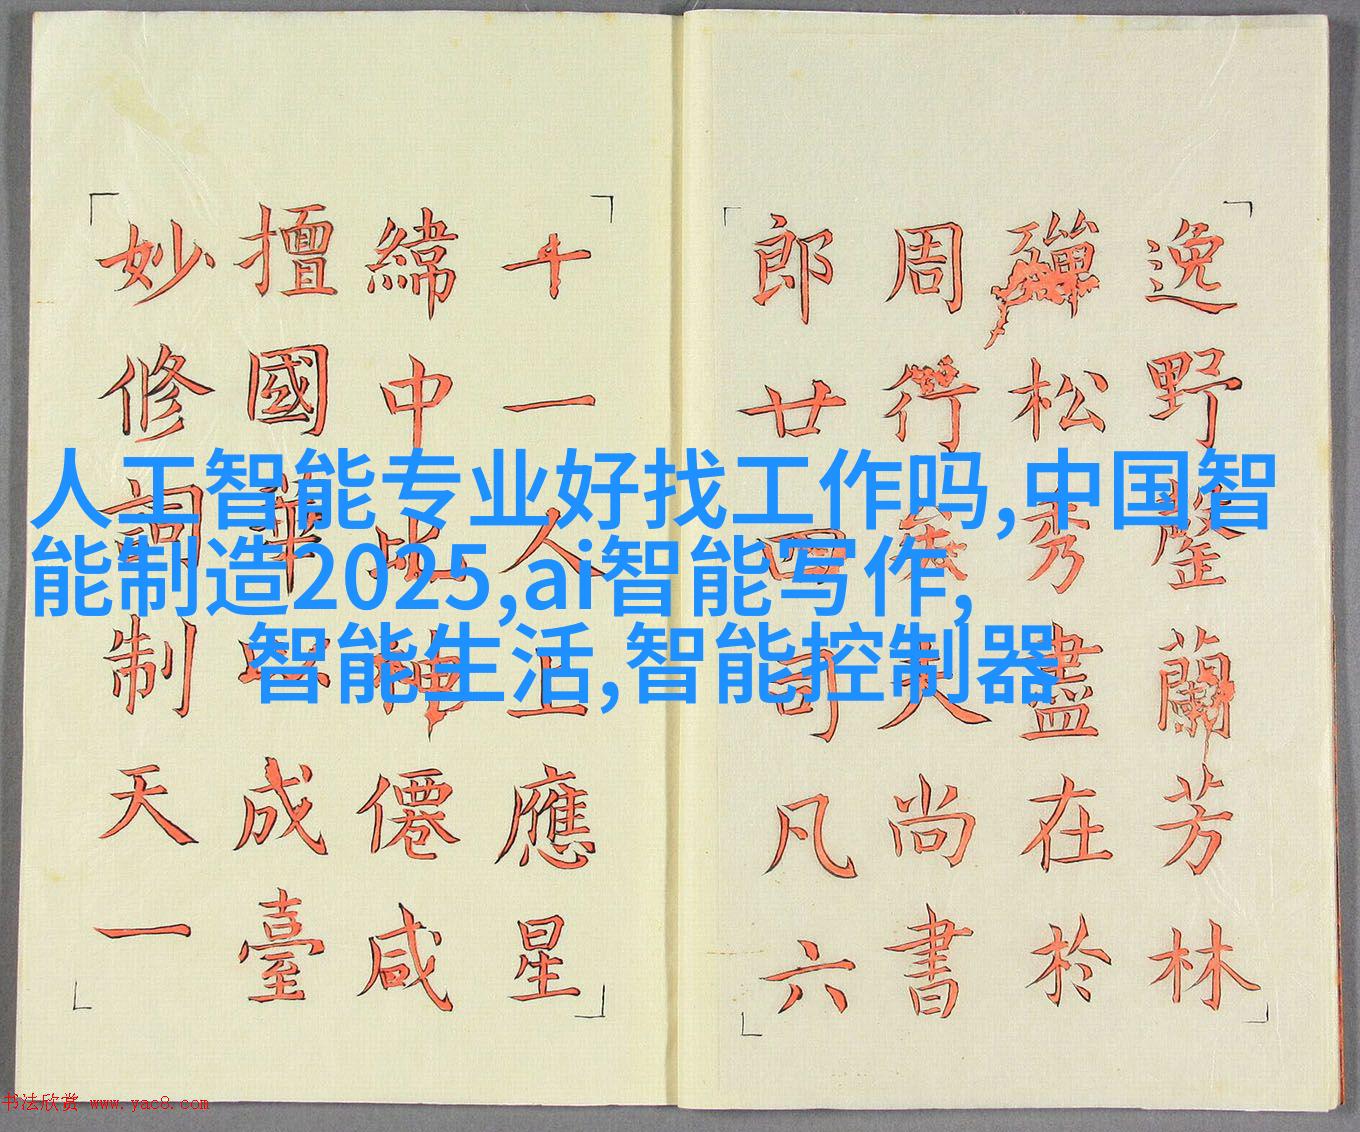 人工智能专业好找工作吗,中国智
能制造2025,ai智能写作,
智能生活,智能控制器
逸野蘭芳林
殫松秀盡在於
周夫尚書
郎廿四司凡六
十一人上應星
緯中比神僊咸
擅國華以成臺
妙修詞制天一
书法欣赏 www.yac8.com